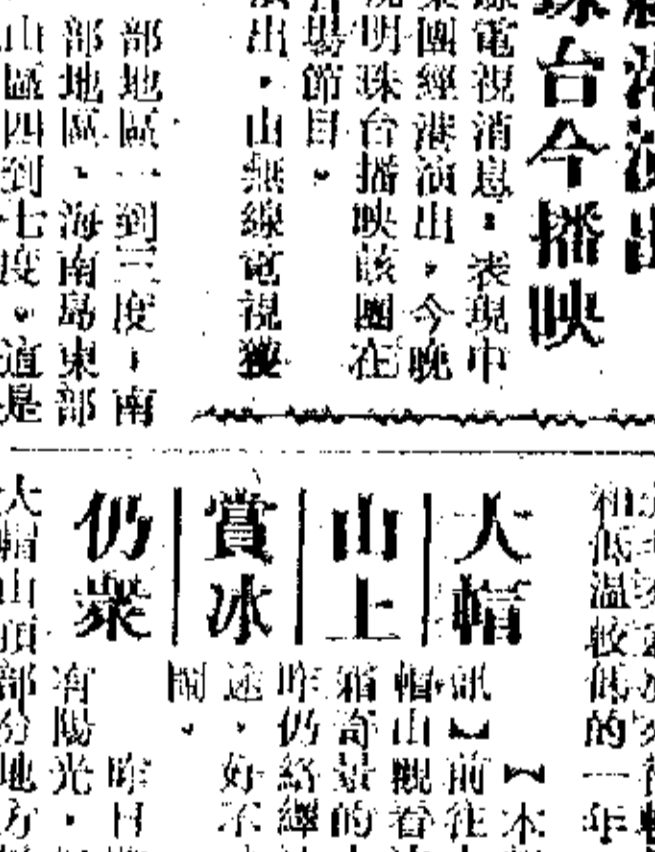 台今播映
線電視消息：表現中
團經港演出，今晚
明珠台播映該團在
場節目。
出，由無線電視獲
部地區一到三度，南
部地區、海南島東部
山區四到七度。這是
和低溫較低的一年
大帽
山上
賞冰
仍衆
【本
訊】前往
帽山觀看
霜奇景的
昨仍絡繹
途，好不
鬧。
昨日
有陽光，
大帽山頂部分地方